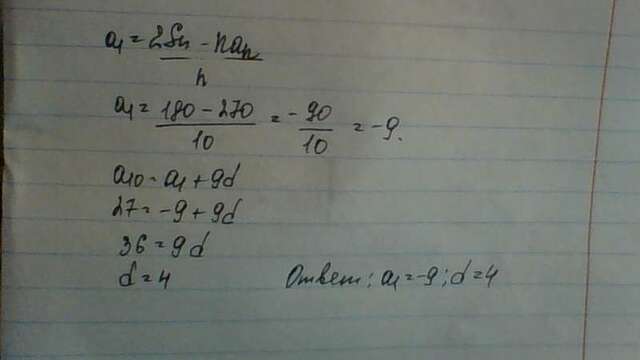 a₁ = 2Sn - nan / n
a₁ = 180 - 270 / 10 = - 90 / 10 = - 9.
a₁₀ = a₁ + 9d
27 = - 9 + 9d
36 = 9d
d = 4 Ответ: a₁ = -9; d = 4